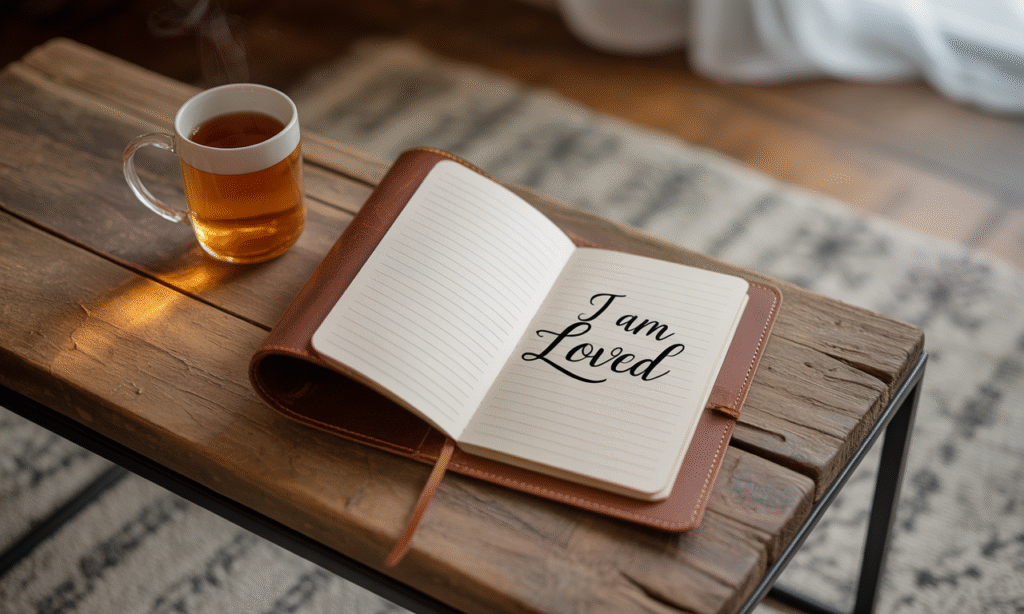 I am
Loved